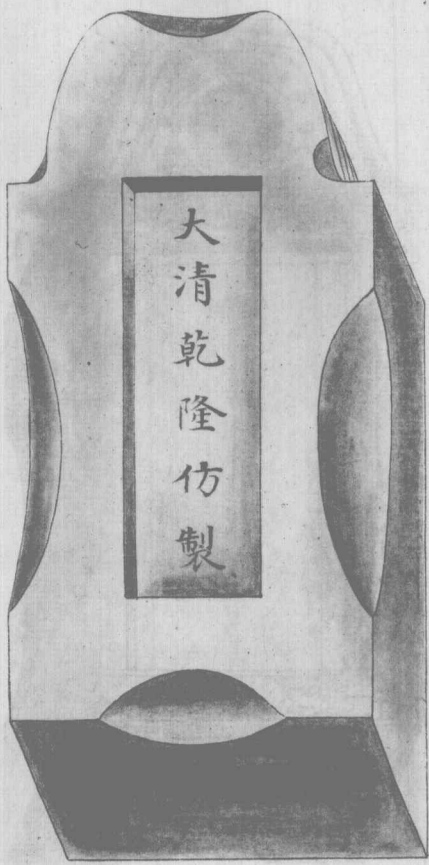 大清乾隆仿製